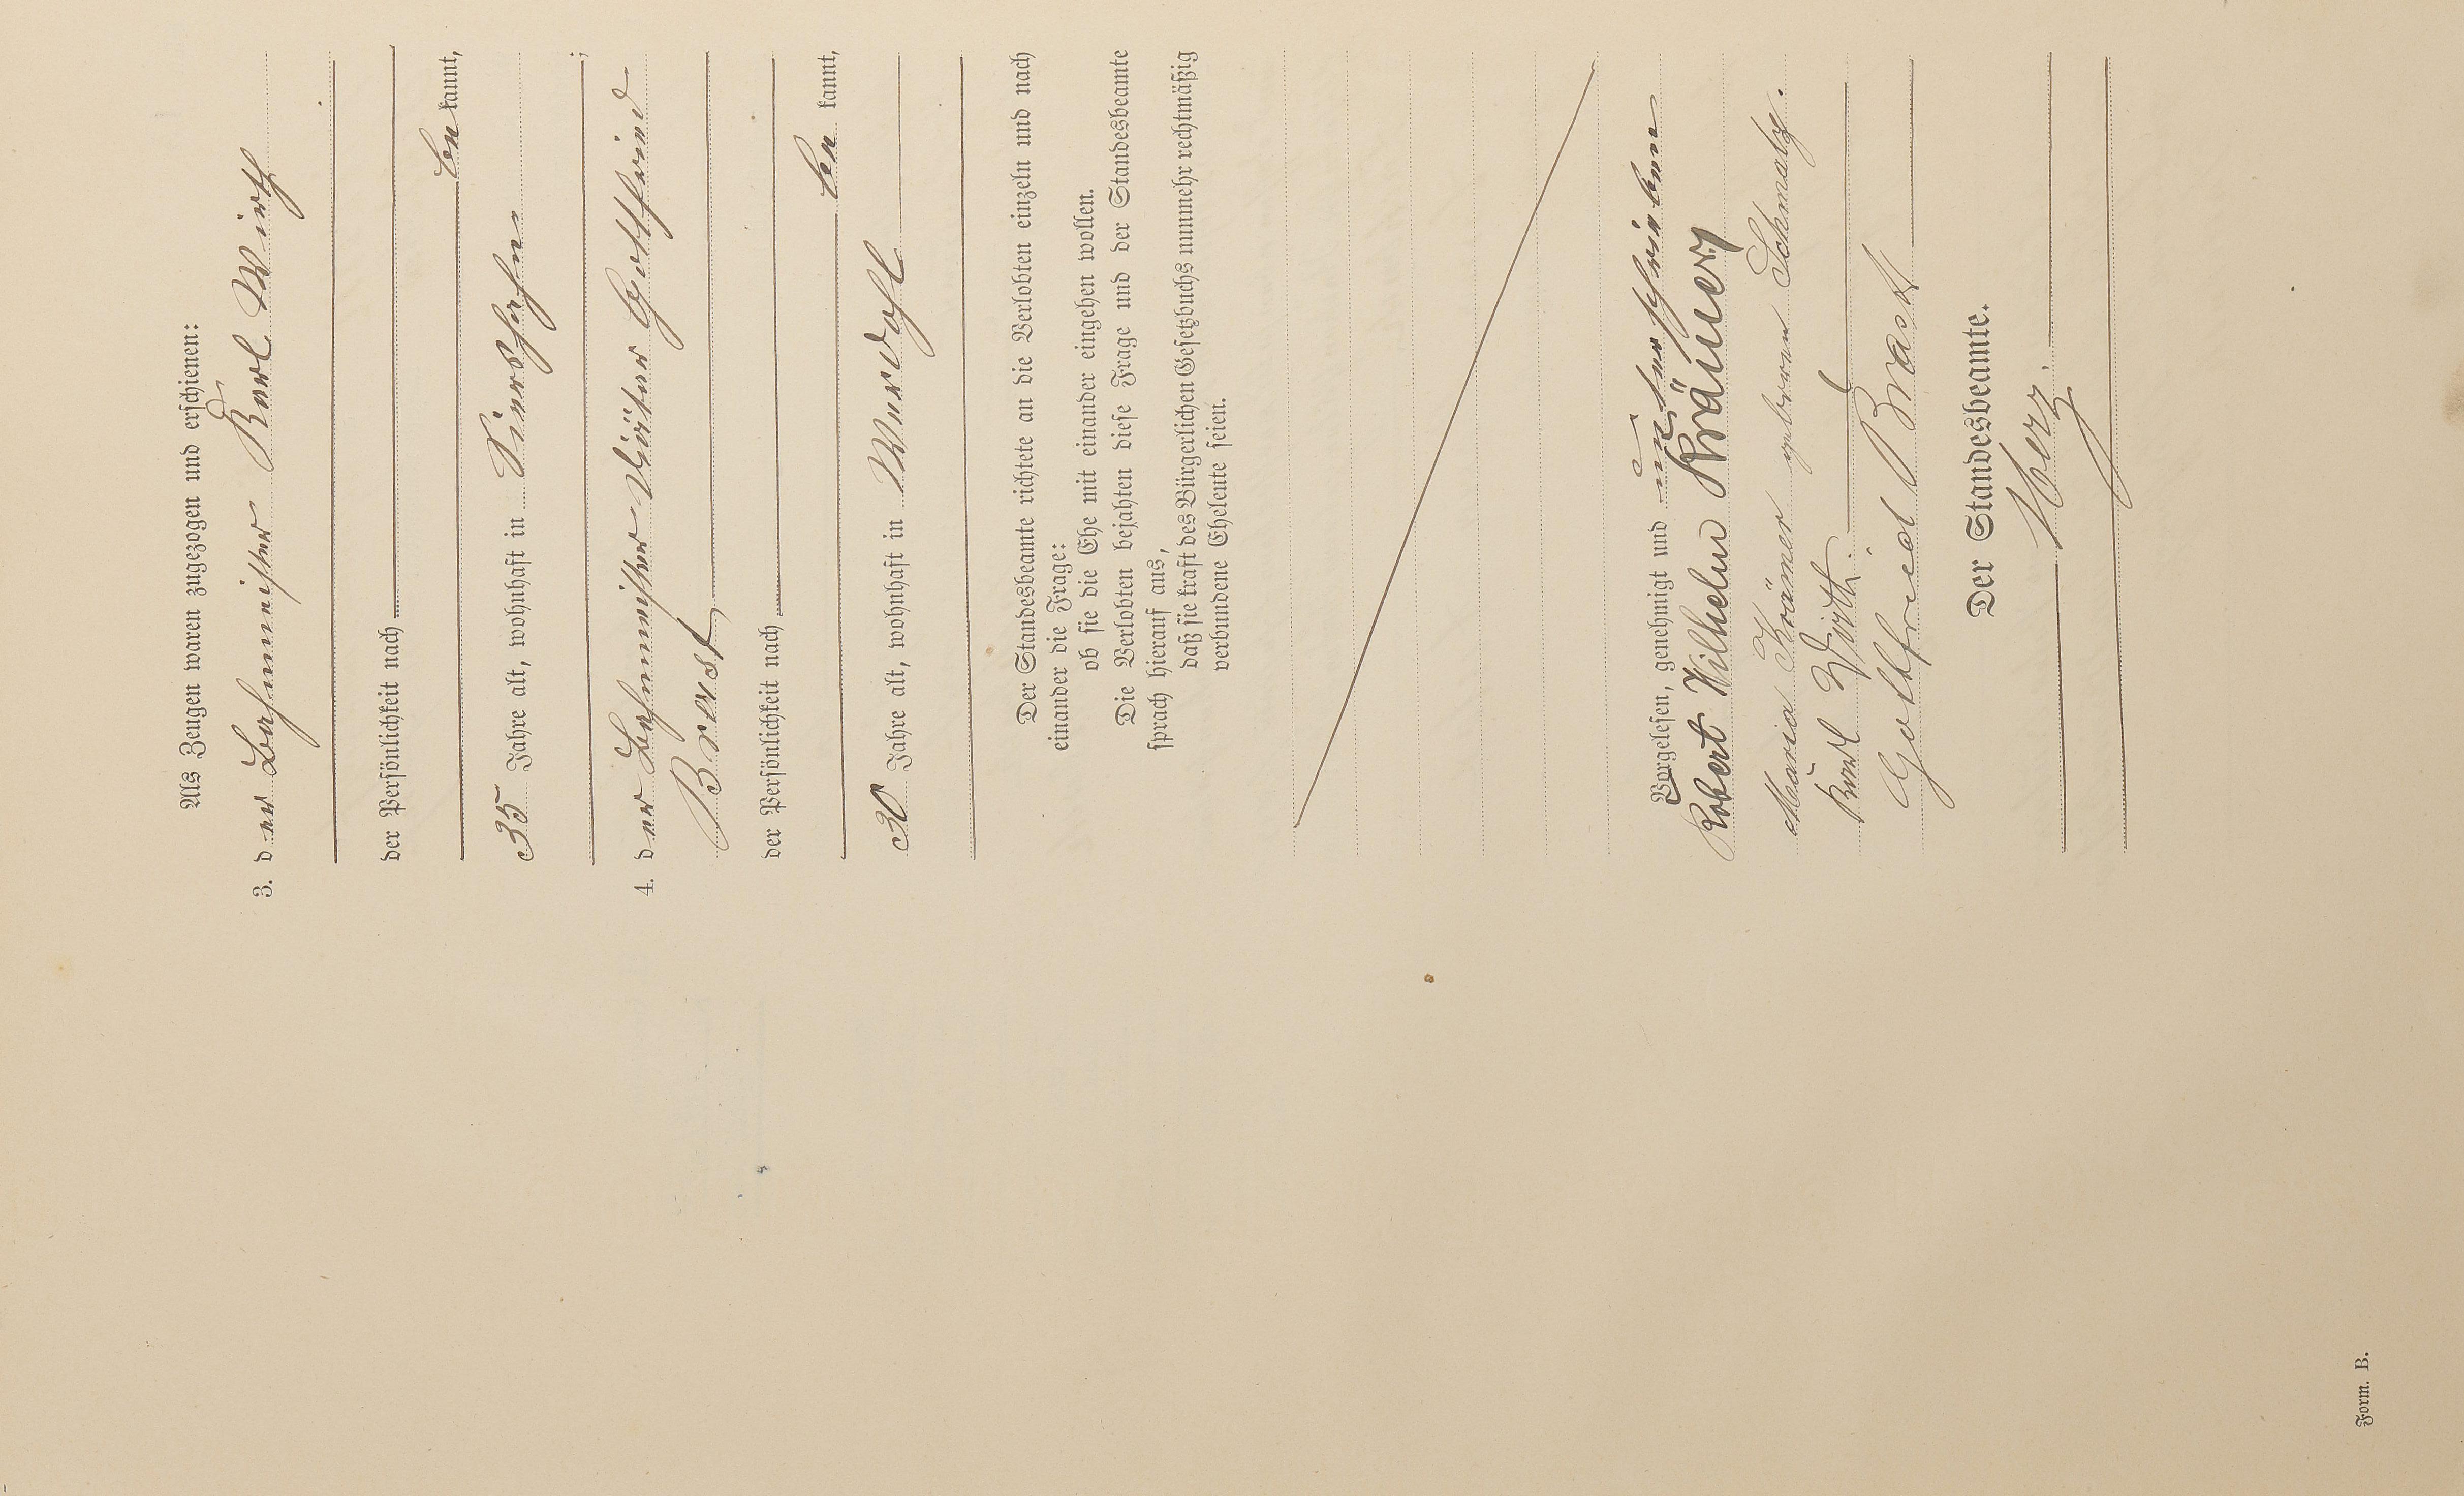 Als Zeugen waren zugezogen und erschienen:
3. der Bahnmeister Karl Wirth
der Persönlichkeit nach
be kannt,
35 Jahre alt, wohnhaft in
4. der Bahnmeister Gottfried
Brast
der Persönlichkeit nach
be kannt,
30 Jahre alt, wohnhaft in Murdahl
Der Standesbeamte richtete an die Verlobten einzeln und nach
einander die Frage:
ob sie die Ehe mit einander eingehen wollen.
Die Verlobten bejahten diese Frage und der Standesbeamte
sprach hierauf aus,
daß sie kraft des Bürgerlichen Gesetzbuchs nunmehr rechtmäßig
verbundene Eheleute seien.
Vorgelesen, genehmigt und unterschrieben
Robert Wilhelm Krämer
Maria Krämer geborene Schmalz.
Karl Wirth.
Gottfried Brast
Der Standesbeamte.
Merz.
Form. B.